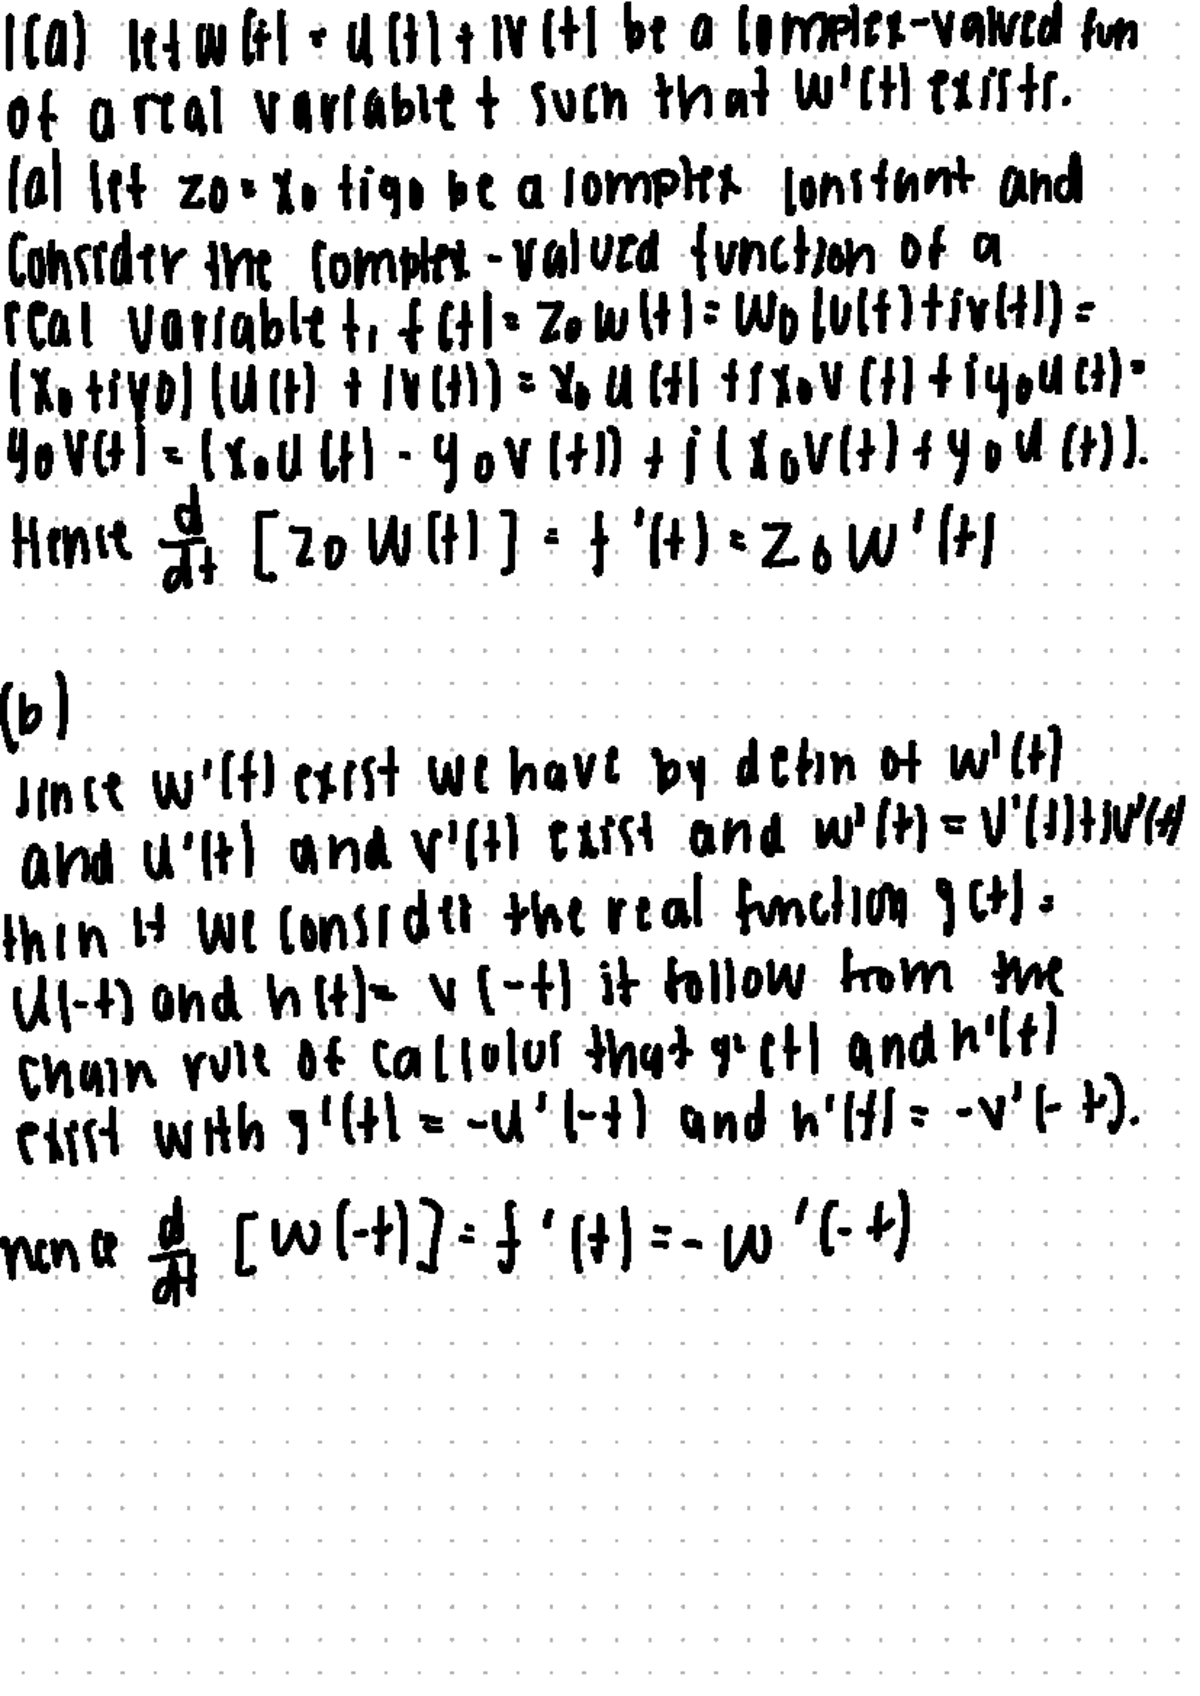 1(a) let w(t) = u(t) + iv(t) be a complex-valued fun
of a real variable t such that w'(t) exists.
(a) let z0 = x0 + iy0 be a complex constant and
Consider the complex-valued function of a
real variable t, f(t) = z0 w(t) = w0 (u(t) + iv(t)) =
(x0 + iy0) (u(t) + iv(t)) = x0 u(t) + ix0 v(t) + iy0 u(t) -
y0 v(t) = (x0 u(t) - y0 v(t)) + i(x0 v(t) + y0 u(t)).
Hence d/dt [z0 w(t)] = f'(t) = z0 w'(t)
(b)
since w'(t) exist we have by defin of w'(t)
and u'(t) and v'(t) exist and w'(t) = u'(t) + iv'(t)
then if we consider the real function g(t) =
u(-t) and h(t) = v(-t) it follow from the
chain rule of callolus that g'(t) and h'(t)
exist with g'(t) = -u'(-t) and h'(t) = -v'(-t).
hence d/dt [w(-t)] = f'(t) = -w'(-t)